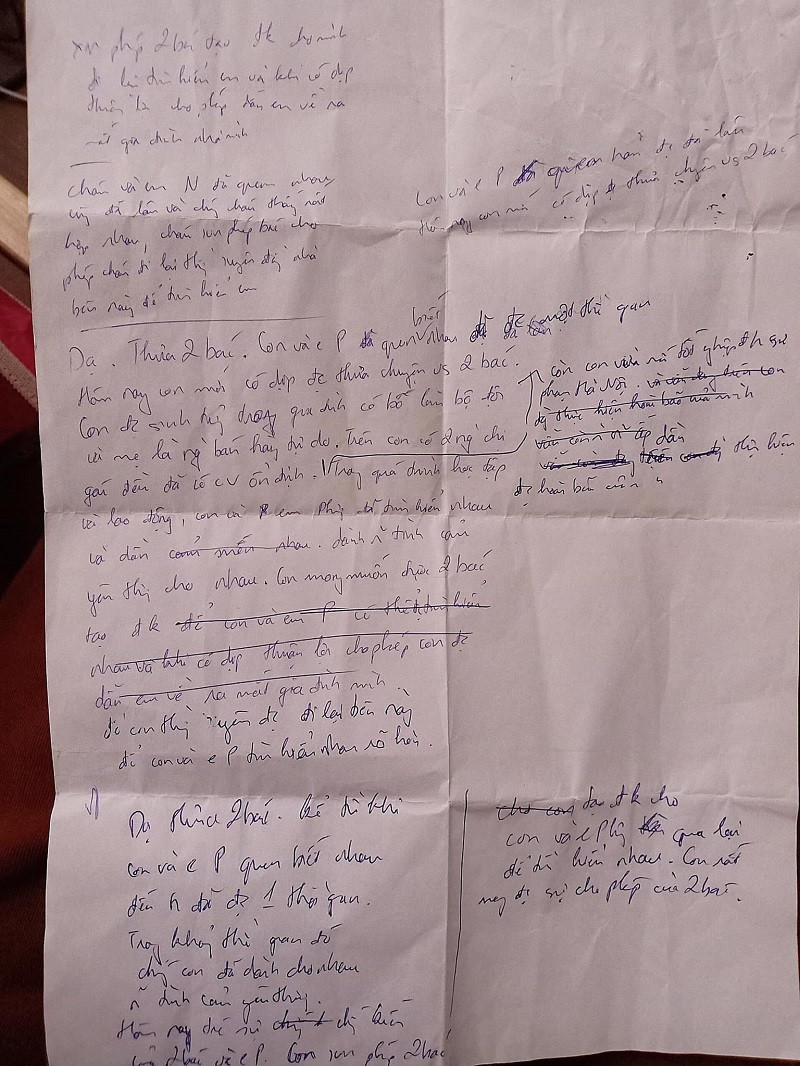 xin phép 2 bác tạo đk cho mình
đi lại tìm hiểu em và khi có dịp
thuận lợi cho phép dẫn em về ra
mắt gia đình nhà mình
cháu và em N đã quen nhau
cũng đã lâu và chúng cháu thấy rất
hợp nhau, cháu xin phép bác cho
phép cháu đi lại thg xuyên đến nhà
bên này để tìm hiểu em
Con và e P đã quen nhau đc đã lâu
Hôm nay con mới có dịp đc thưa chuyện vs 2 bác
Dạ. Thưa 2 bác. Con và e P đã quen biết nhau đã đc một thời gian
Hôm nay con mới có dịp đc thưa chuyện vs 2 bác.
Con đc sinh ra trong gia đình có bố làm bộ đội
và mẹ là ng bán hàng tự do. Trên con có 2 ng chị
gái đều đã có cv ổn định. Trong quá trình học tập
và lao động, con và em Phg đã tìm hiểu nhau
và dần cảm mến nhau. dành n tình cảm
yêu thg cho nhau. Con mong muốn được 2 bác
tạo đk để con và em P có thể tìm hiểu
nhau và khi có dịp thuận lợi cho phép con đc
dẫn em về ra mắt gia đình mình.
để con thg xuyên đc đi lại bên này
để con và e P tìm hiểu nhau rõ hơn.
còn con vừa mới tốt nghiệp đh sư
phạm Hà Nội.
thực hiện hoài bão của mình
dần
thực hiện
đc hoài bão của
Dạ thưa 2 bác. kể từ khi
con và e P quen biết nhau
đến n đã đc 1 thời gian.
Trong khoảng thời gian đó
chúng con đã dành cho nhau
n tình cảm yêu thg.
Hôm nay trc sự chứng kiến
của 2 bác và e P. Con xin phép 2 bác
cho con tạo đk cho
con và e Phg qua lại
để tìm hiểu nhau. Con rất
mong đc sự cho phép của 2 bác.